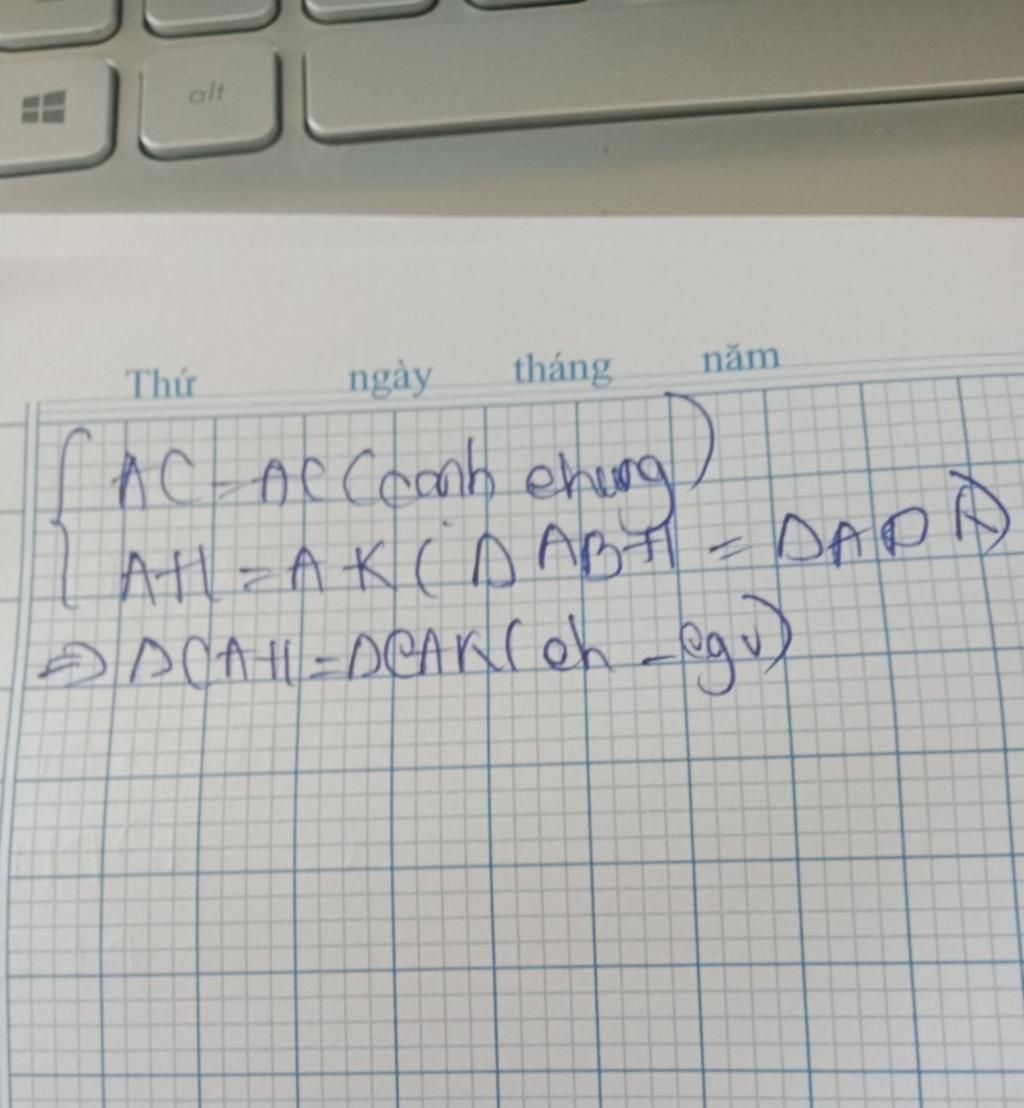 alt
Thứ ngày tháng năm
{ AC = AC (cạnh chung)
AH = AK ( Δ ABH = Δ AD )
⇒ Δ CAH = Δ CAK ( ch - cgv)